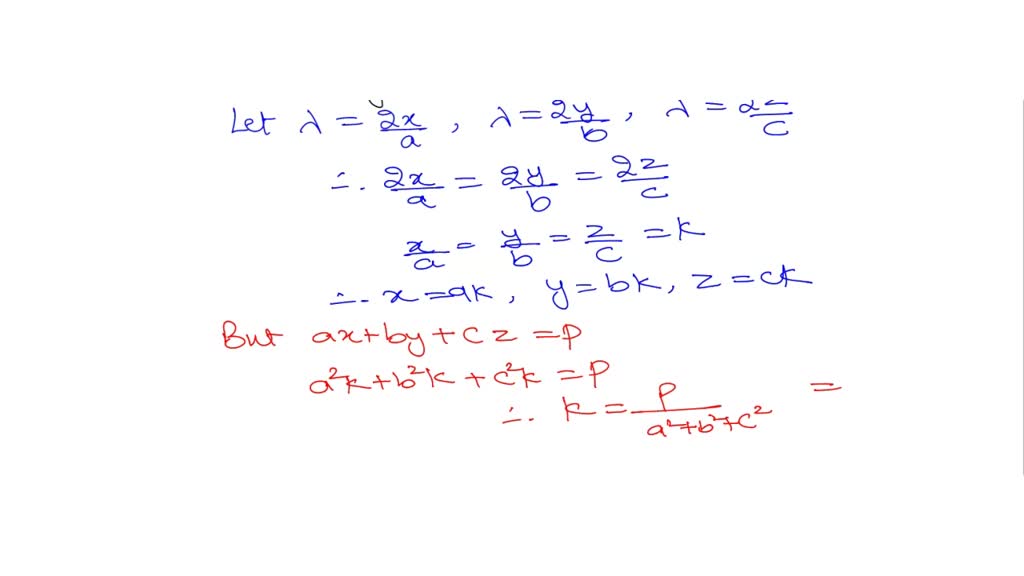 Let λ = 2x/a , λ = 2y/b , λ = 2z/c
∴ 2x/a = 2y/b = 2z/c
x/a = y/b = z/c = k
∴ x = ak, y = bk, z = ck
But ax+by+cz = P
a²k+b²k+c²k = P
∴ k = P/a²+b²+c² =